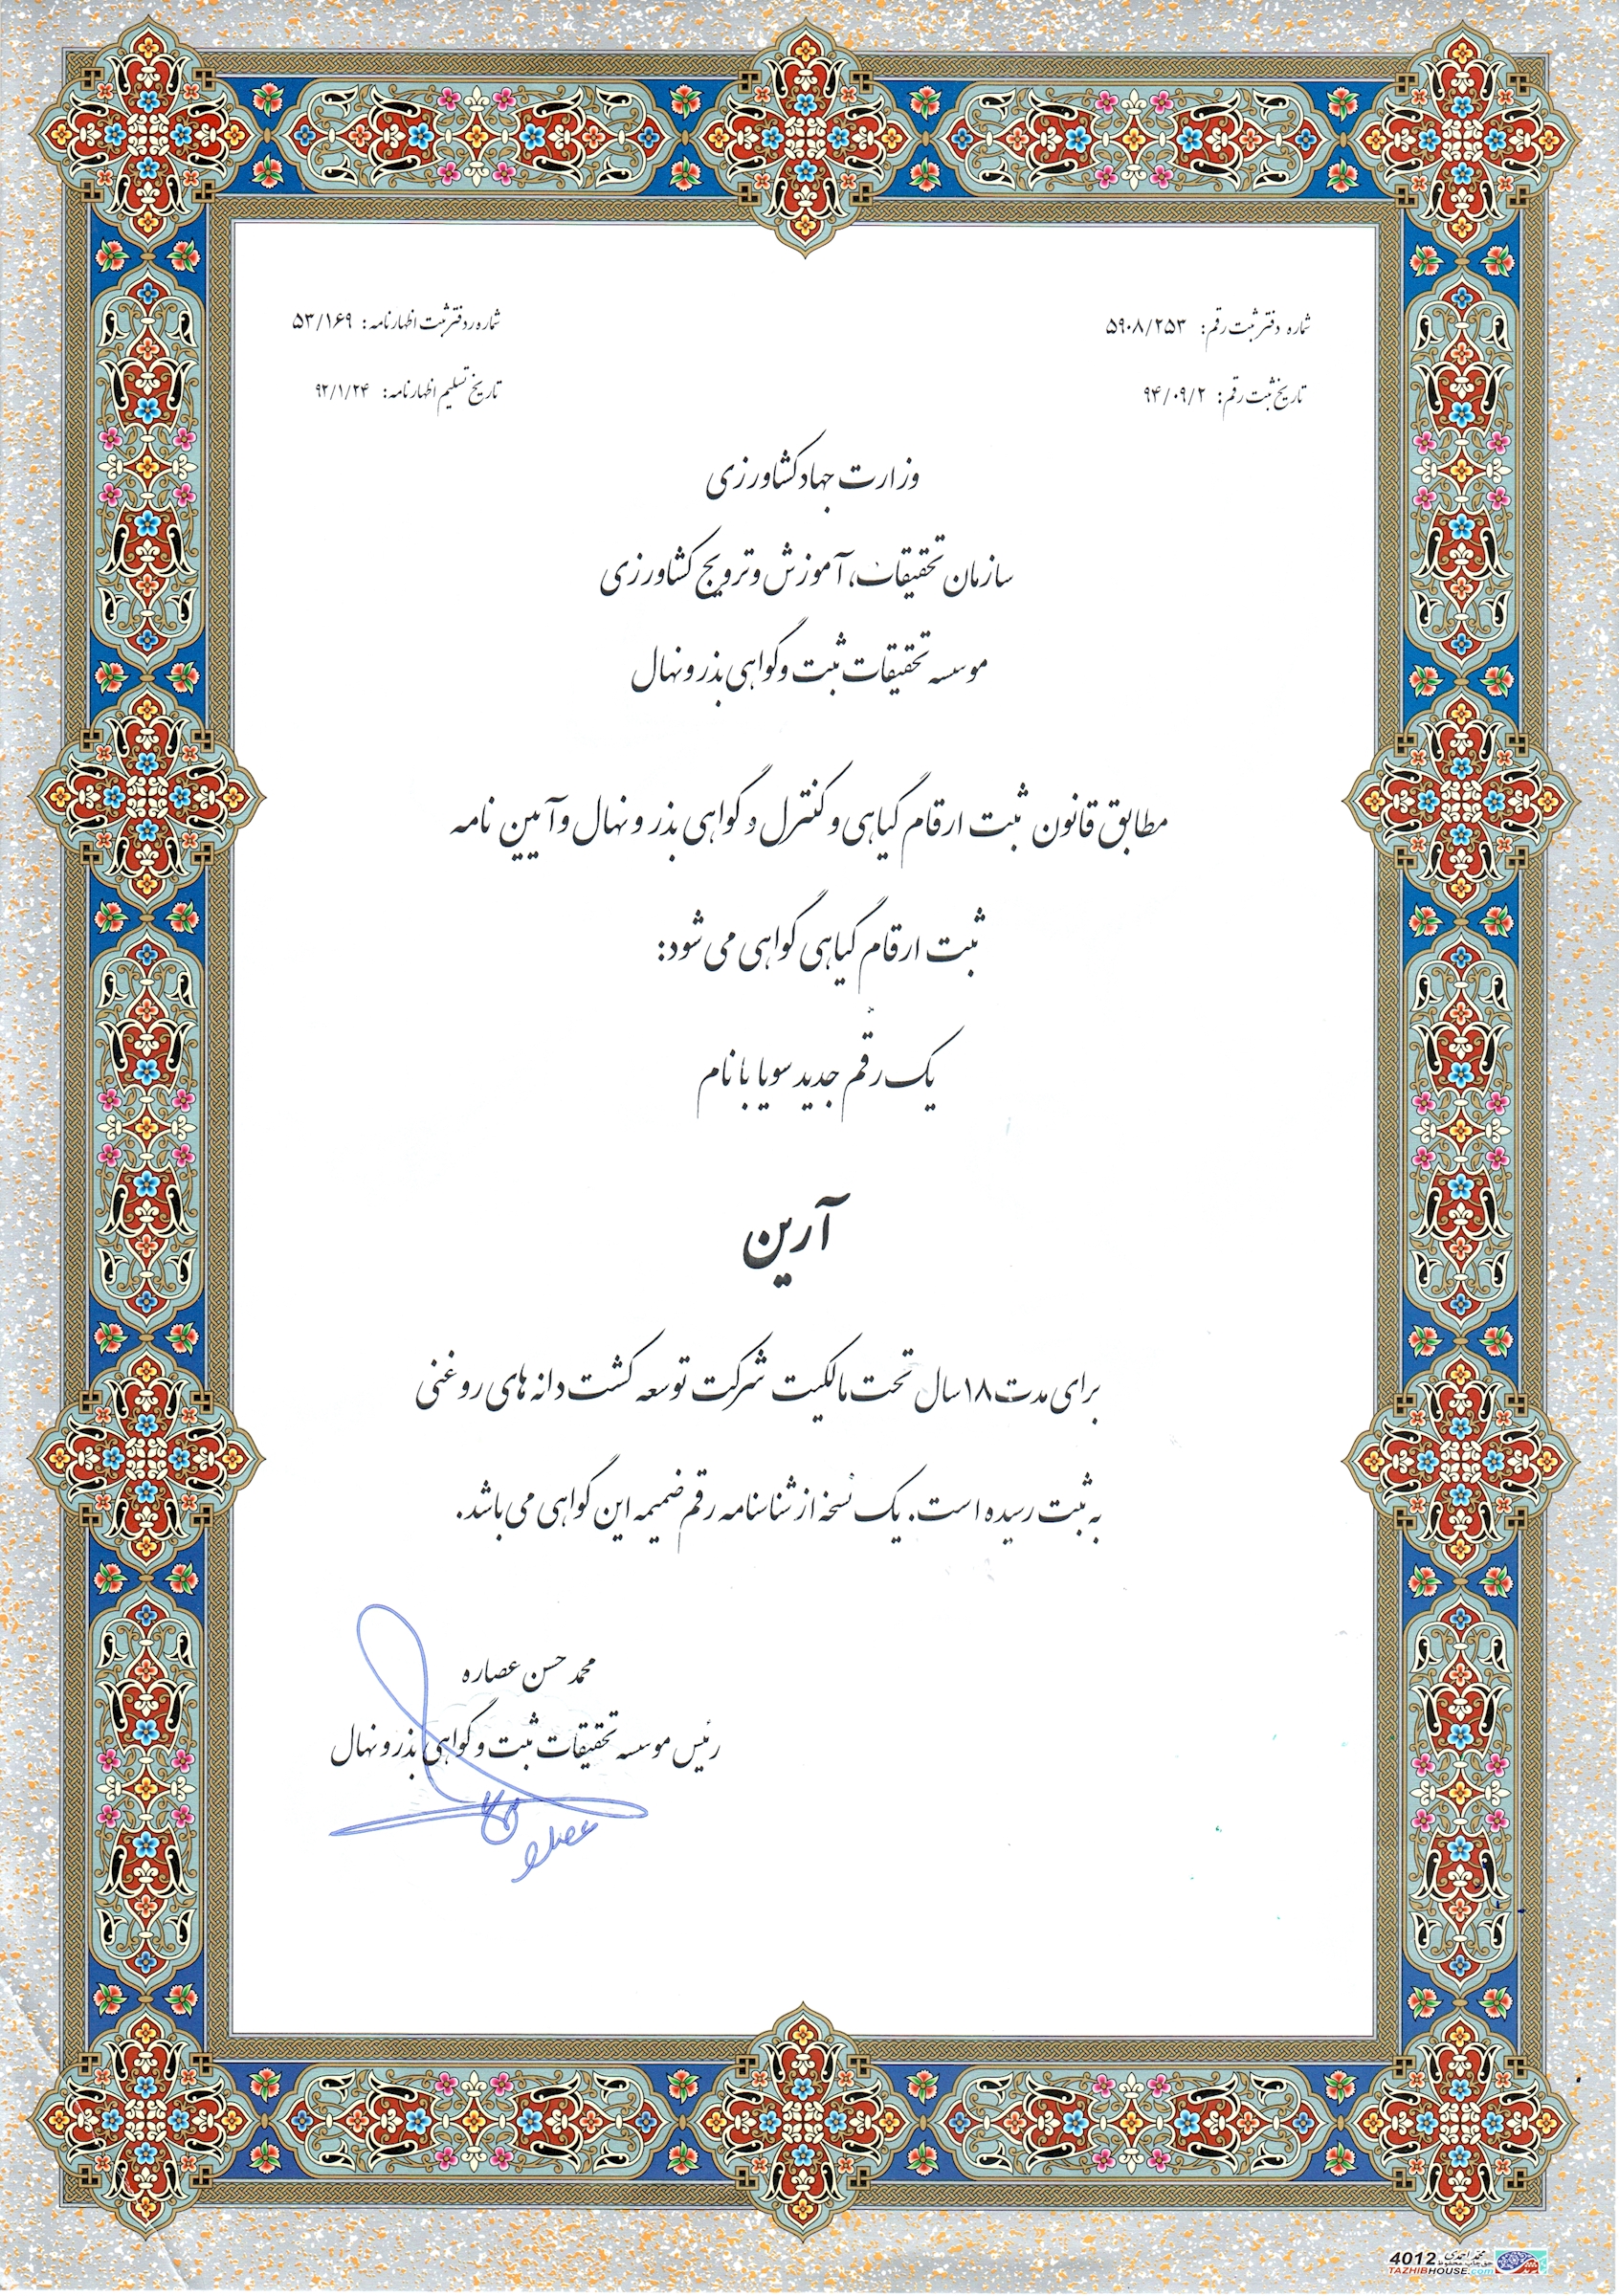 شماره دفتر ثبت رقم: ۵۹۰۸/۲۵۳
شماره ردفتر ثبت اظهارنامه: ۵۳/۱۶۹
تاریخ ثبت رقم: ۹۴/۰۹/۲
تاریخ تسلیم اظهارنامه: ۹۲/۱/۲۴
وزارت جهاد کشاورزی
سازمان تحقیقات، آموزش و ترویج کشاورزی
موسسه تحقیقات ثبت و گواهی بذر و نهال
مطابق قانون ثبت ارقام گیاهی و کنترل و گواهی بذر و نهال و آیین نامه
ثبت ارقام گیاهی گواهی می شود:
یک رقم جدید سویا با نام
آرین
برای مدت ۱۸ سال تحت مالکیت شرکت توسعه کشت دانه های روغنی
به ثبت رسیده است. یک نسخه از شناسنامه رقم ضمیمه این گواهی می باشد.
محمد حسن عصاره
رئیس موسسه تحقیقات ثبت و گواهی بذر و نهال
محمد احمدی
4012 حق چاپ محفوظ
TAZHIBHOUSE.com